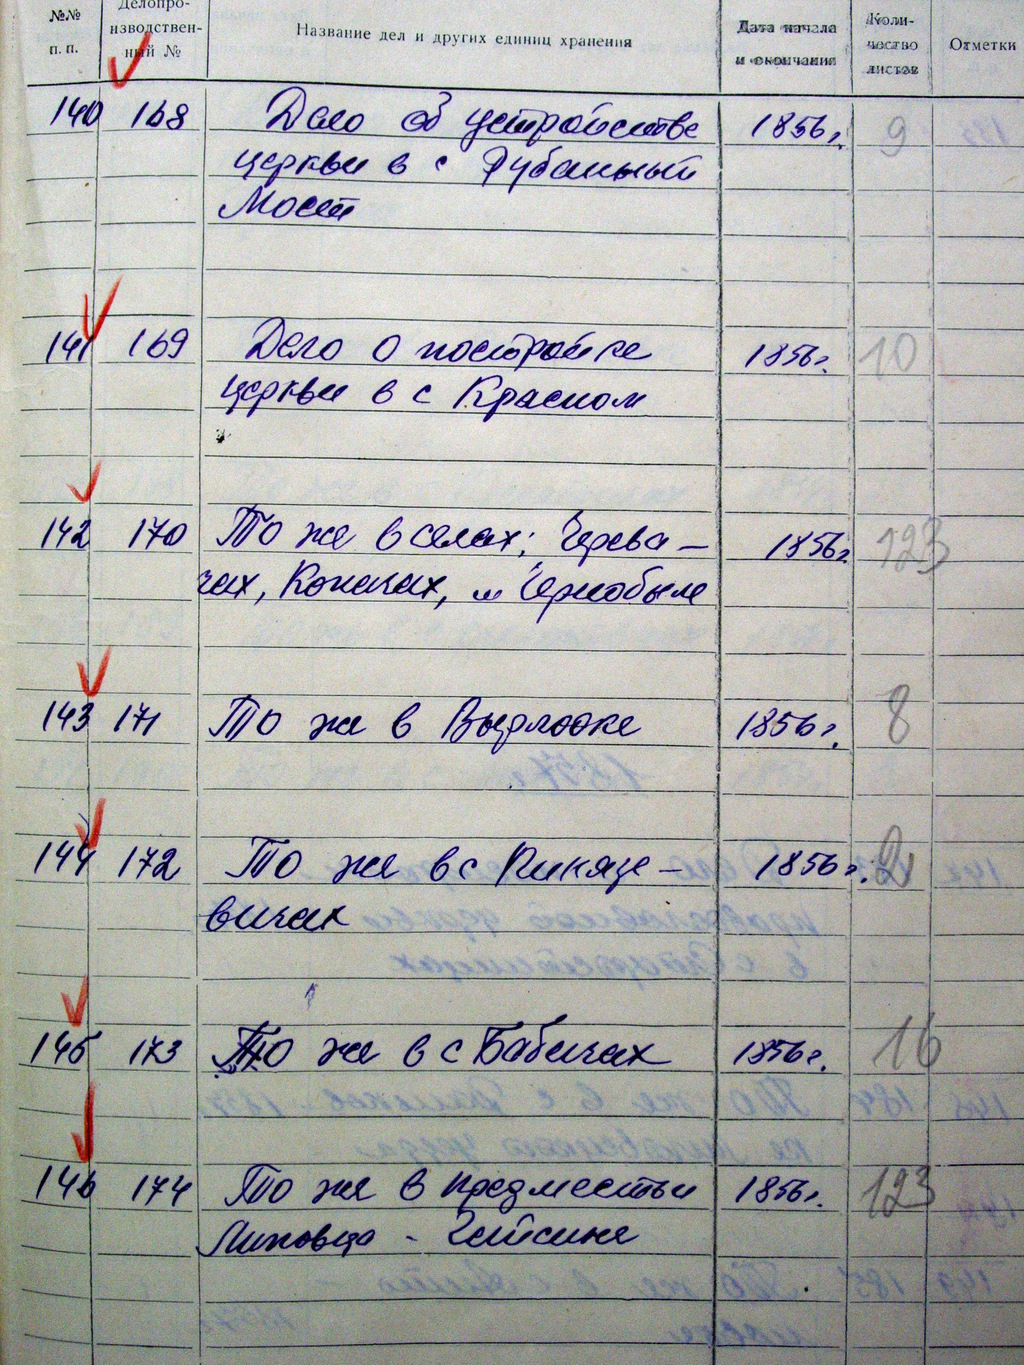 №№ п. п.
Делопроизводственный №
Название дел и других единиц хранения
Дата начала и окончания
Количество листов
Отметки
140 168 Дело об устройстве 1856г. 9
церкви в с Рубанный
Мост
141 169 Дело о постройке 1856г. 10
церкви в с Красном
142 170 То же в селах: Черева- 1856г. 123
чах, Копачах, и Чернобыле
143 171 То же в Выдловке 1856г. 8
144 172 То же в с 1856г.
145 173 То же в с Бабичах 1856г. 16
146 174 То же в предместьи 1856г. 123
Липовца -